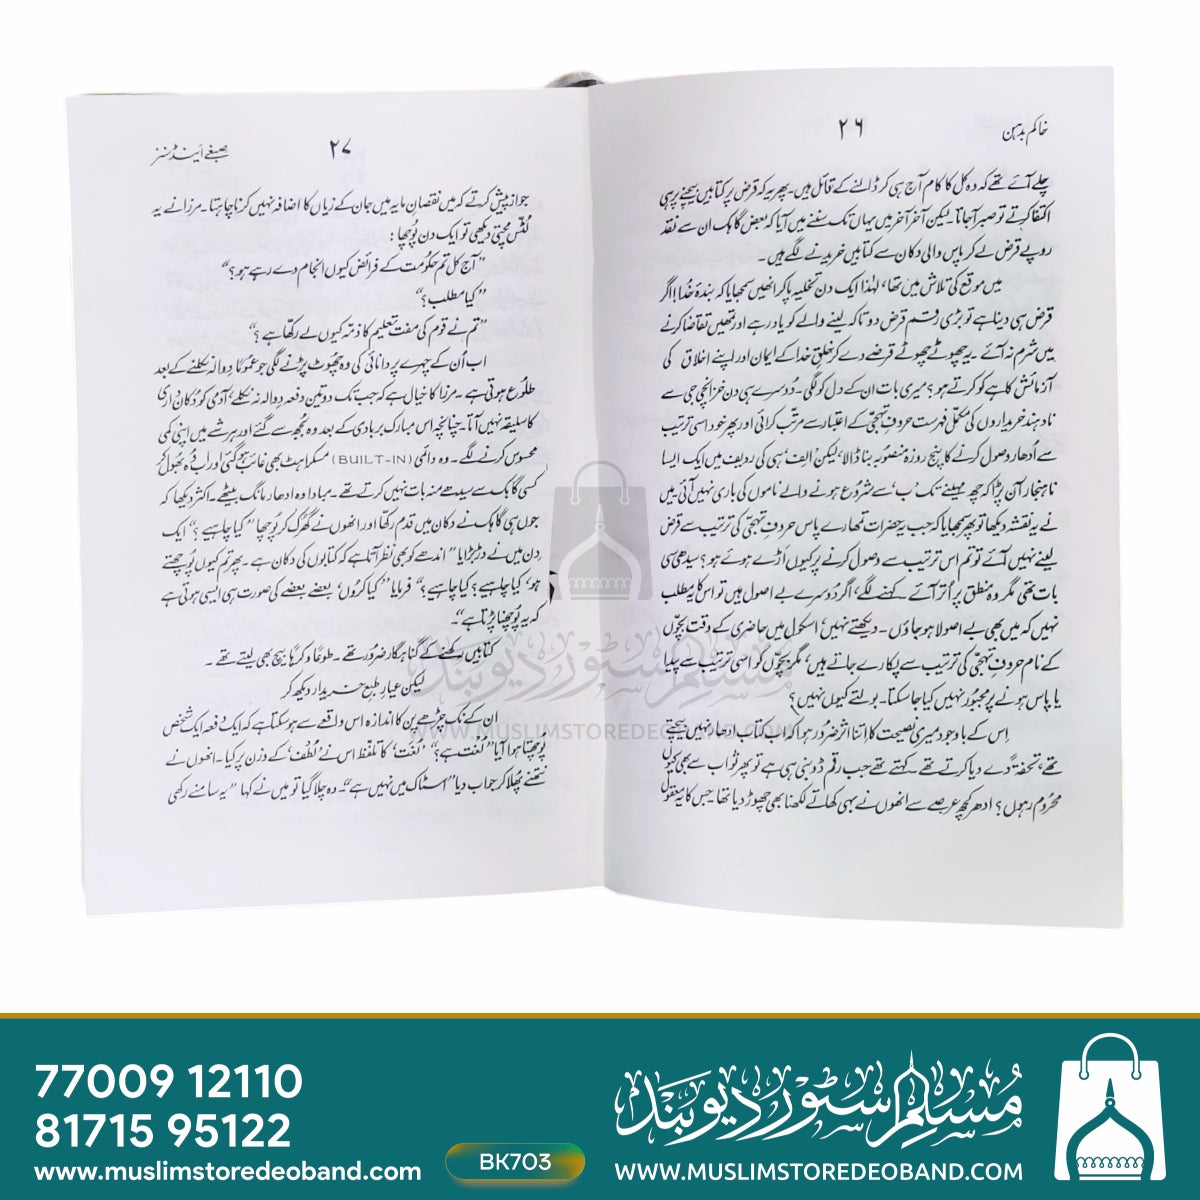 خاکم بدہن
۲۶
چلے آئے تھے کہ وہ کل کا کام آج ہی کر ڈالنے کے قائل ہیں۔ پھر یہ کہ قرض پر کتابیں بیچنے پر ہی
اکتفا کرتے تو صبر آ جاتا۔ لیکن آخر آخر میں یہاں تک سننے میں آیا کہ بعض گاہک ان سے نقد
روپے قرض لے کر پاس والی دکان سے کتابیں خریدنے لگے ہیں۔
میں موقع کی تلاش میں تھا، لہٰذا ایک دن تخلیہ پا کر انھیں سمجھایا کہ بندۂ خُدا! اگر
قرض ہی دینا ہے تو بڑی رقم قرض دو تاکہ لینے والے کو یاد رہے اور تمھیں تقاضا کرنے
میں شرم نہ آئے۔ یہ چھوٹے چھوٹے قرضے دے کر خلقِ خدا کے ایمان اور اپنے اخلاق کی
آزمائش کاہے کو کرتے ہو؟ میری بات ان کے دل کو لگی۔ دُوسرے ہی دن خزانچی جی سے
نادہند خریداروں کی مکمل فہرست حروفِ تہجّی کے اعتبار سے مرتّب کرائی اور پھر خود اسی ترتیب
سے اُدھار وصول کرنے کا پنج روزہ منصُوبہ بنا ڈالا، لیکن ’الف‘ ہی کی ردیف میں ایک ایسا
ناہنجار آن پڑا کہ چھ مہینے تک ’ب‘ سے شروع ہونے والے ناموں کی باری نہیں آئی۔ میں
نے یہ نقشہ دیکھا تو پھر سمجھایا کہ جب یہ حضرات تمھارے پاس حروفِ تہجّی کی ترتیب سے قرض
لینے نہیں آئے تو تم اس ترتیب سے وصول کرنے پر کیوں اَڑے ہوئے ہو؟ سیدھی سی
بات تھی مگر وہ منطق پر اُتر آئے۔ کہنے لگے، اگر دُوسرے بے اصول ہیں تو اس کا یہ مطلب
نہیں کہ میں بھی بے اصولا ہو جاؤں۔ دیکھتے نہیں، اسکول میں حاضری کے وقت بچّوں
کے نام حروفِ تہجّی کی ترتیب سے پکارے جاتے ہیں، مگر بچّوں کو اسی ترتیب سے پیدا
یا پاس ہونے پر مجبُور نہیں کیا جا سکتا۔ بولتے کیوں نہیں؟
اِس کے باوجود میری نصیحت کا اتنا اثر ضرور ہوا کہ اب کتاب اُدھار نہیں بیچتے
تھے، تحفۃً دے دیا کرتے تھے۔ کہتے تھے جب رقم ڈوبنی ہی ہے تو پھر ثواب سے بھی کیوں
محرُوم رہوں؟ ادھر کچھ عرصے سے انھوں نے بہی کھاتے لکھنا بھی چھوڑ دیا تھا۔ جس کا یہ معقول
۲۷
صبغے اینڈ سنز
جواز پیش کرتے کہ میں نقصانِ مایہ میں جان کے زیاں کا اضافہ نہیں کرنا چاہتا۔ مرزا نے یہ
لُٹس مچتی دیکھی تو ایک دن پُوچھا:
”آج کل تم حکُومت کے فرائض کیوں انجام دے رہے ہو؟“
”کیا مطلب؟“
”تم نے قوم کی مفت تعلیم کا ذمّہ کیوں لے رکھا ہے؟“
اب اُن کے چہرے پر دانائی کی وہ چھُوٹ پڑنے لگی جو عمُوماً دِوالہ نکلنے کے بعد
طلُوع ہوتی ہے۔ مرزا کا خیال ہے کہ جب تک دو تین دفعہ دِوالہ نہ نکلے، آدمی کو دُکان داری
کا سلیقہ نہیں آتا۔ چنانچہ اس مبارک بربادی کے بعد وہ بُجھ سے گئے اور ہر شے میں اپنی کمی
محسوس کرنے لگے۔ وہ دائمی (BUILT-IN) مسکراہٹ بھی غائب ہو گئی اور اب وُہ بھُول کر
کسی گاہک سے سیدھے منہ بات نہیں کرتے تھے۔ مبادا وہ ادھار مانگ بیٹھے۔ اکثر دیکھا کہ
جوں ہی گاہک نے دکان میں قدم رکھا اور انھوں نے گھُرک کر پُوچھا ”کیا چاہیے؟“ ایک
دِن میں نے دڑبڑایا ”اندھے کو بھی نظر آتا ہے کہ کتابوں کی دکان ہے۔ پھر تم کیوں پُوچھتے
ہو، کیا چاہیے؟ کیا چاہیے؟“ فرمایا ”کیا کروں، بعضے بعضے کی صورت ہی ایسی ہوتی ہے
کہ یہ پُوچھنا پڑتا ہے“۔
کتابیں رکھنے کے گناہگار ضرور تھے۔ طوعاً و کرہاً بیچ بھی لیتے تھے۔
لیکن عیارِ طبعِ خریدار دیکھ کر
ان کے نک چڑھے پن کا اندازہ اس واقعے سے ہو سکتا ہے کہ ایک دفعہ ایک شخص
پُوچھتا ہوا آیا ”لُغت ہے؟“ ’لُغت‘ کا تلفّظ اس نے ’لُطف‘ کے وزن پر کیا۔ انھوں نے
نتھنے پھُلا کر جواب دیا ”اسٹاک میں نہیں ہے“۔ وہ چلا گیا تو میں نے کہا ”یہ سامنے رکھی
مسلم سٹور دیوبند
WWW.MUSLIMSTOREDEOBAND.COM
77009 12110
81715 95122
www.muslimstoredeoband.com
BK703
مسلم سٹور دیوبند
WWW.MUSLIMSTOREDEOBAND.COM